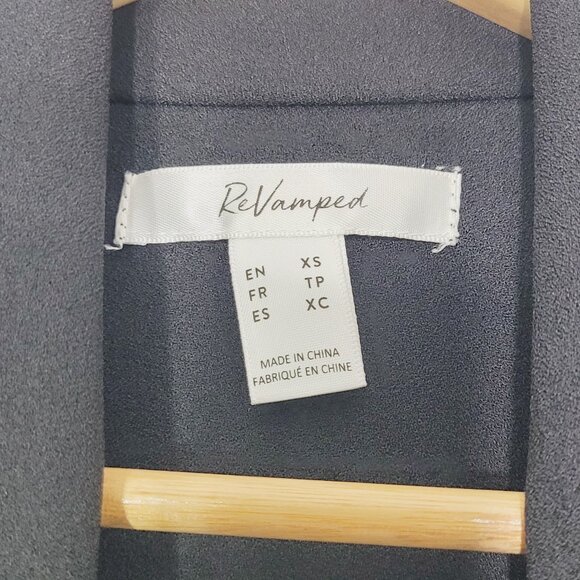 ReVamped
EN XS
FR TP
ES XC
MADE IN CHINA
FABRIQUÉ EN CHINE